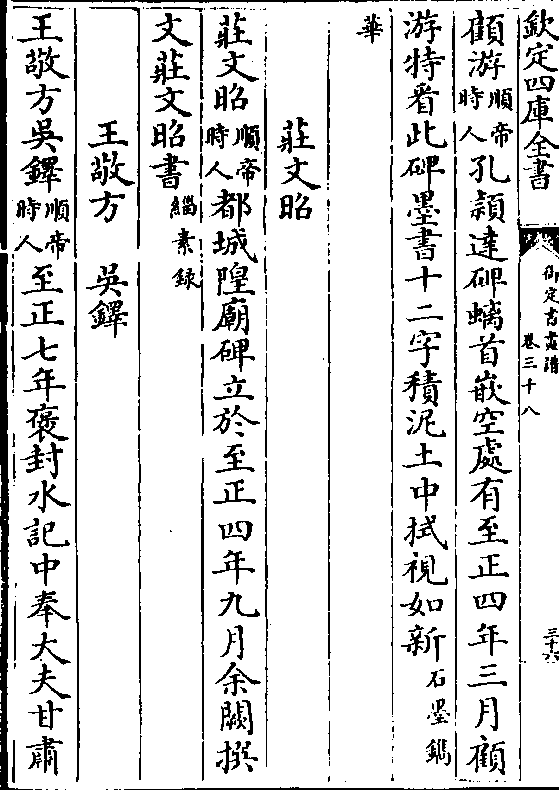 欽定四庫全書
御定書畫譜
卷三十八
三十六
顧游順帝時人孔穎達碑螭首嵌空處有至正四年三月顧
游特看此碑墨書十二字積泥土中拭視如新石墨鐫
華
莊文昭
莊文昭順帝時人都城隍廟碑立於至正四年九月余闕撰
文莊文昭書緇素録
王敬方　吳鐸
王敬方吳鐸順帝時人至正七年褒封水記中奉大夫甘肅